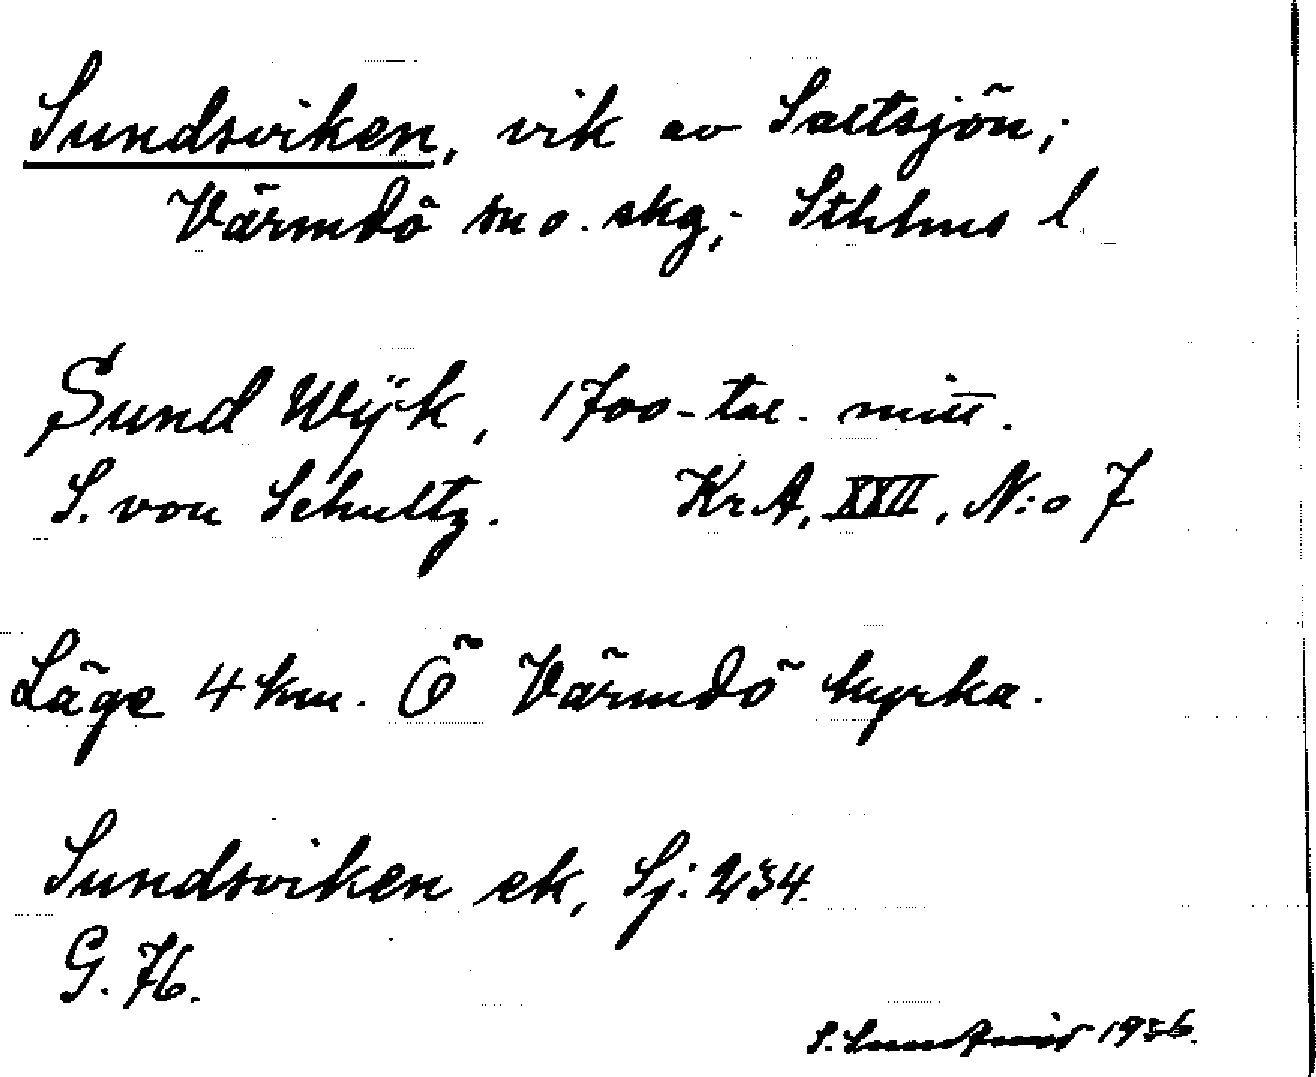 Sundsviken, vik av Saltsjön;
Värmdö sn o. skg; Sthlms l
Sund Wÿk, 1700-tal. mitt.
S. von Schultz. KrA, XXII, N:o 7
Läge 4 km. Ö Värmdö kyrka.
Sundsviken ek, Sj: 234.
G. 76.
S. 1936.